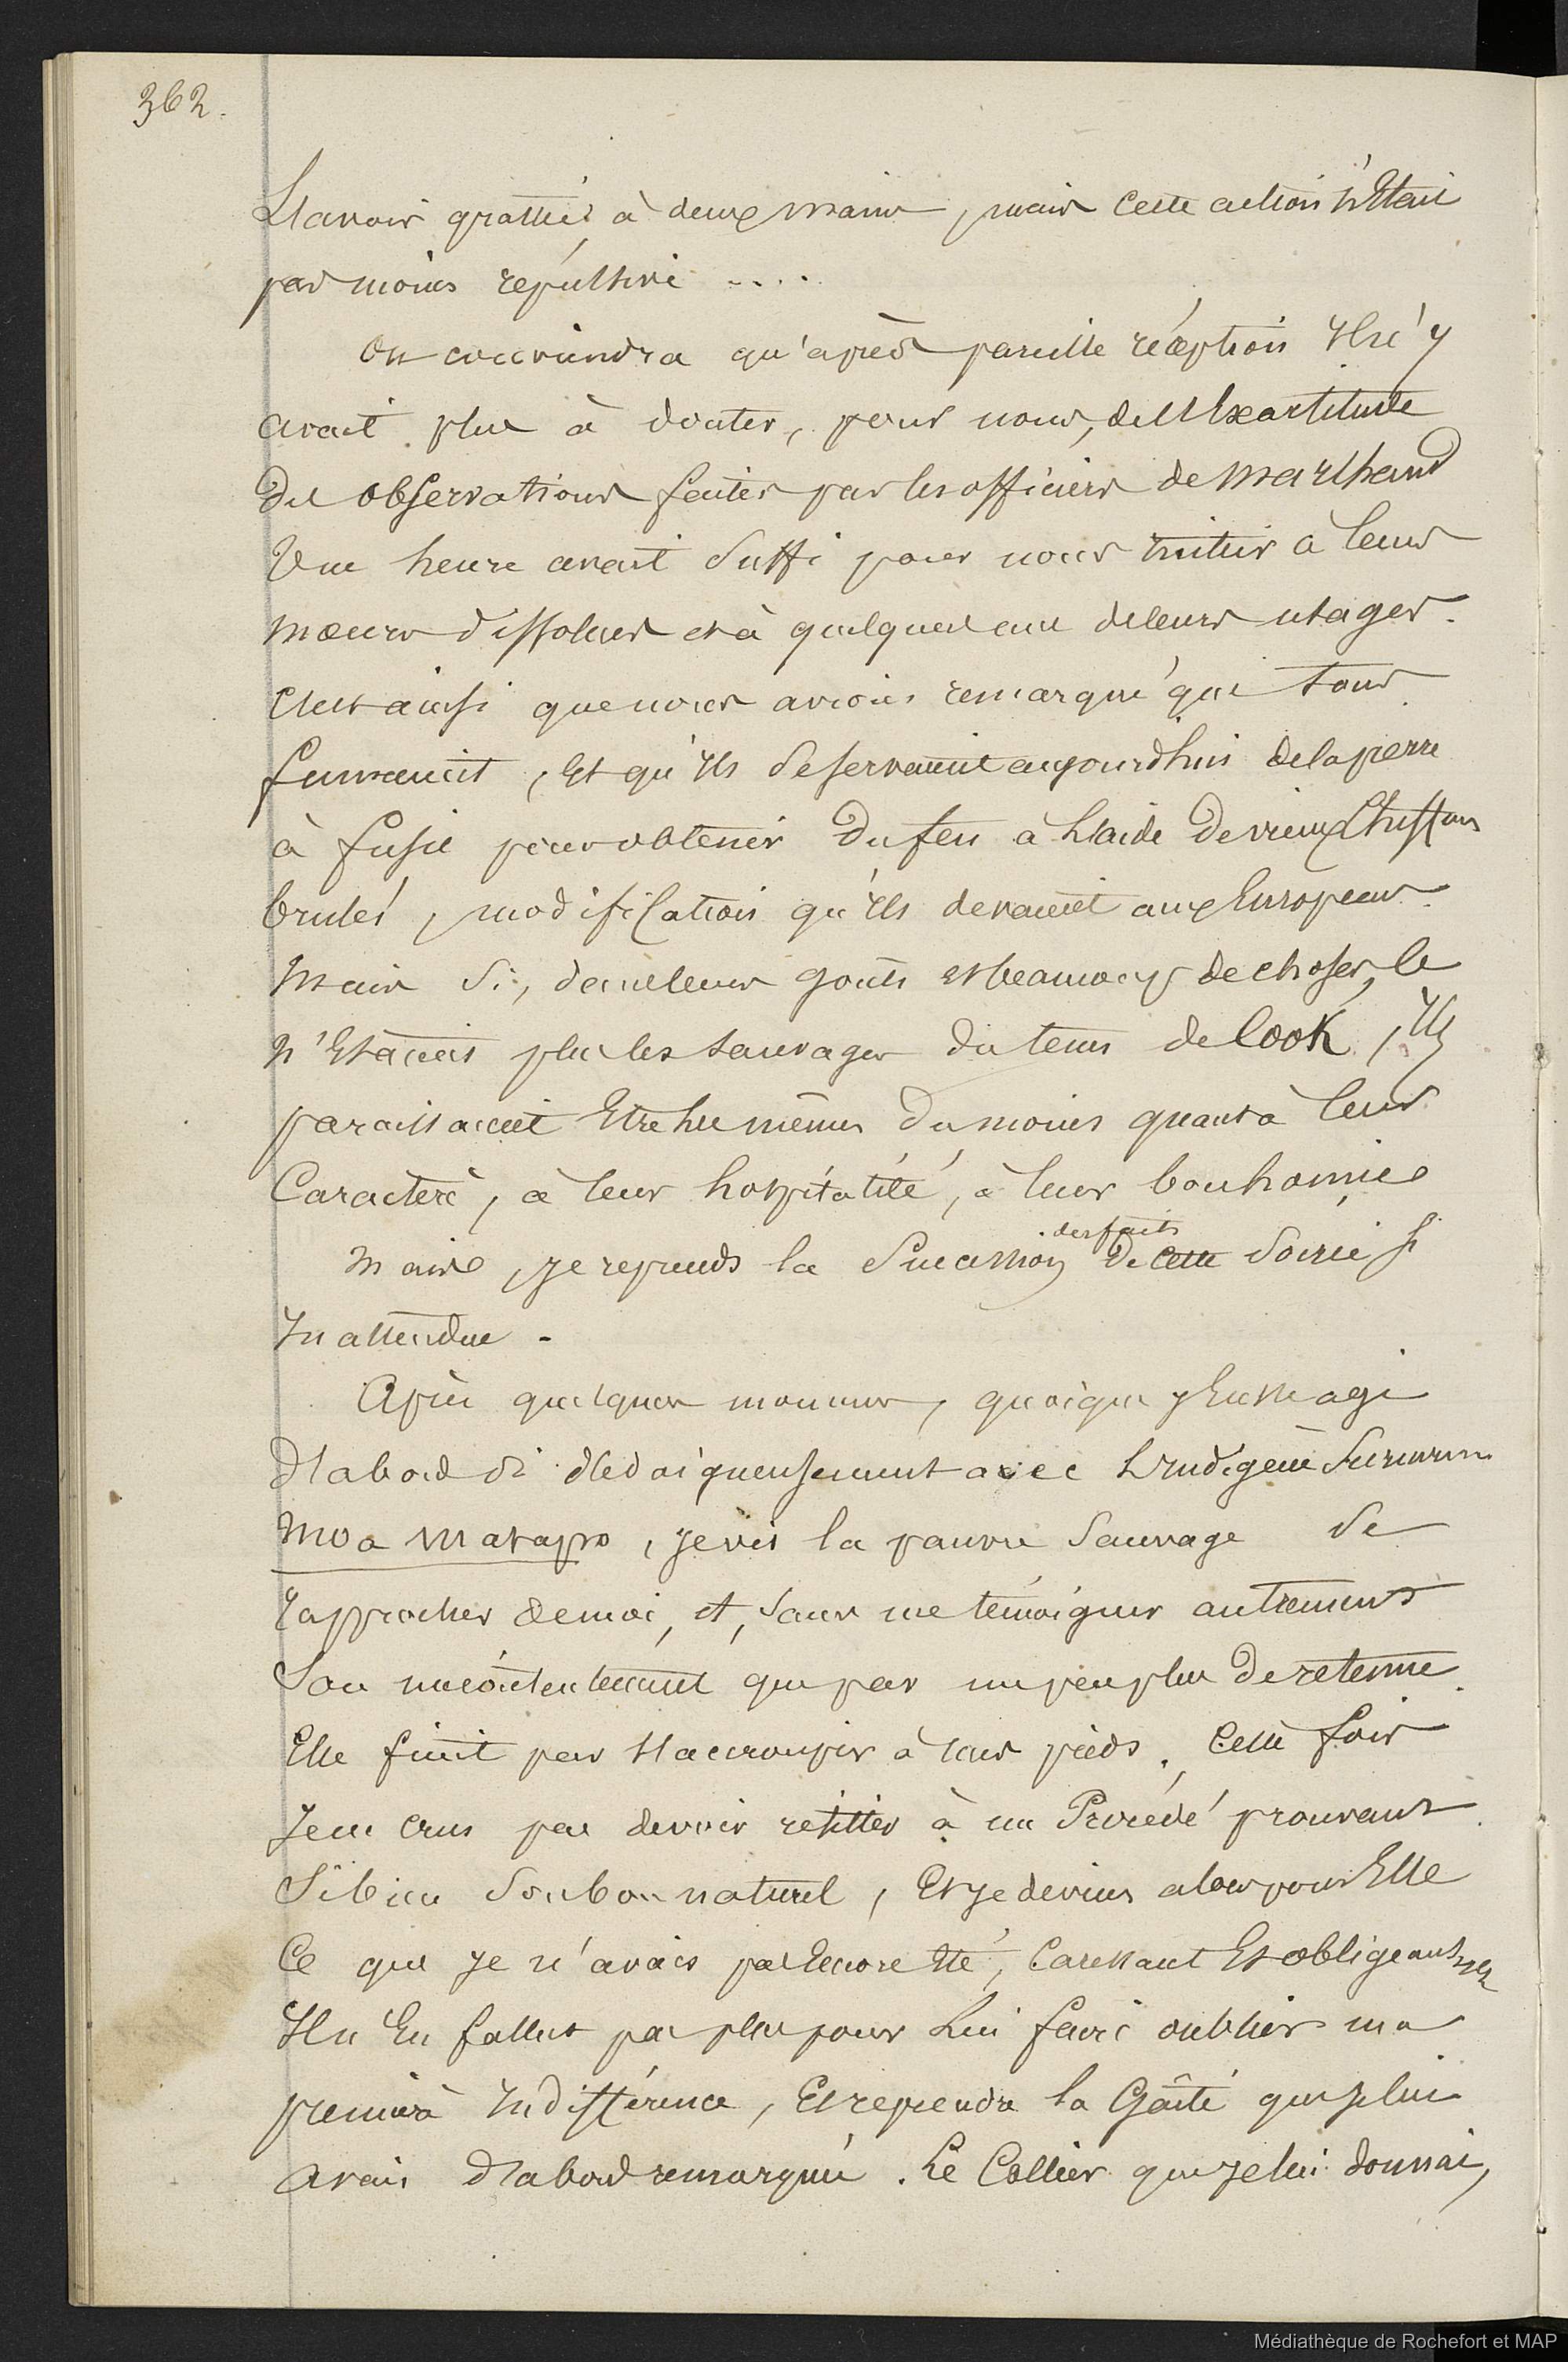 362.
L'avoir gratté à deux mains, mais cette action n'Etait
pas moins répulsive ....
On conviendra qu'après pareille réception Il n'y
avait plus à douter, pour nous, de l'Exactitude
des observations faites par les officiers de Marchand
Une heure avait suffi pour nous initier à leurs
mœurs dissolues et à quelques uns de leurs usages.
C'est ainsi que nous avions remarqué que tous
fumaient, Et qu'Ils se servaient aujourd'hui de la pierre
à fusil pour obtenir du feu à l'aide de vieux Chiffons
brulés, modification qu'Ils devaient aux Européens.
Mais si, dans leurs goûts et beaucoup de choses, Ce
n'Etaient plus les sauvages du tems de Cook, Ils
paraissaient Etre les mêmes du moins quant à leur
Caractère, à leur hospitalité, à leur bonhomie
Mais, je reprends la succession des faits de cette soirée si
Inattendue.
Après quelques momens, quoique j'Eusse agi
d'abord si dédaigneusement avec l'Indigène surnommée
Moa Matapo, je vis la pauvre sauvage se
rapprocher de moi, et, sans me témoigner autrement
son mécontentement que par un peu plus de retenue.
Elle finit par s'accroupir à mes pieds. Cette fois
Je ne crus pas devoir résister à un Procédé prouvant
si bien son bon naturel, Et je devins alors pour Elle
Ce que je n'avais pas Encore Eté, Caressant Et obligeant
Il n'En fallut pas plus pour lui faire oublier ma
première Indifférence, Et reprendre la Gaîté que je lui
avais d'abord remarquée. Le Collier que je lui donnai,
Médiathèque de Rochefort et MAP